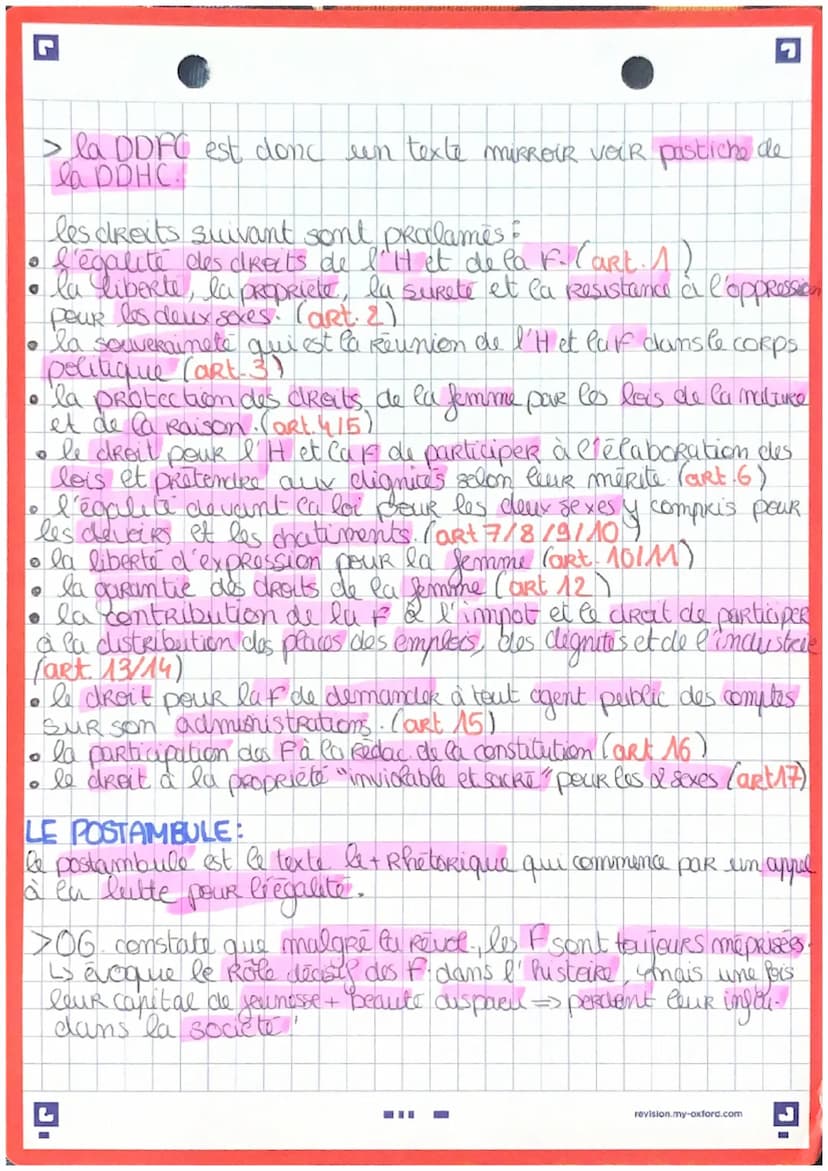 > la DDFC est donc un texte mirroir voir pastiche de
la DDHC.
les droits suivant sont proclamés :
• l'égalité des droits de l'H et de la F. (art. 1)
• la liberté, la propriété, la sureté et la résistance à l'oppression
pour les deux sexes. (art. 2)
• la souveraineté qui est la réunion de l'H et la F dans le corps
politique (art. 3)
• la protection des droits de la femme par les lois de la nature
et de la raison. (art. 4/5)
• le droit pour l'H et la F de participer à l'élaboration des
lois et prétendre aux dignités selon leur mérite (art. 6)
• l'égalité devant la loi pour les deux sexes y compris pour
les devoirs et les chatiments. (art 7/8/9/10)
• la liberté d'expression pour la femme (art. 10/11)
• la garantie des droits de la femme (art 12)
• la contribution de la F à l'impot et le droit de participer
à la distribution des places des emplois, des dignités et de l'industrie
(art. 13/14)
• le droit pour la F de demander à tout agent public des comptes
sur son administrations. (art 15)
• la participation des F à la rédac. de la constitution (art 16)
• le droit à la propriété "inviolable et sacré" pour les 2 sexes (art 17)
LE POSTAMBULE :
le postambule est le texte le + rhétorique qui commence par un appel
à la lutte pour l'égalité.
> OG. constate que malgré la Révol., les F sont toujours méprisées.
↳ évoque le rôle décisif des F. dans l'histoire, mais une fois
leur capital de jeunesse + beauté disparu => perdent leur influ.
dans la société !
revision.my-oxford.com